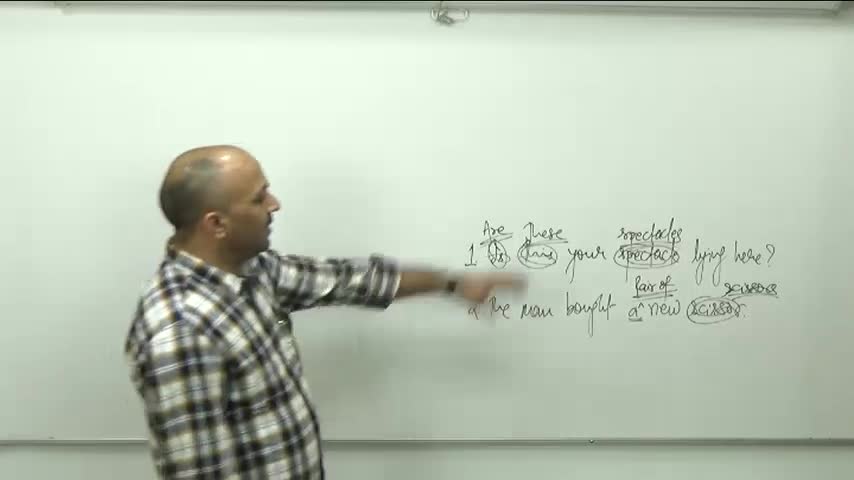 Are These spectacles
1 Is this your spectacle lying here?
pair of scissors
2 The man bought a ^ new scissor.